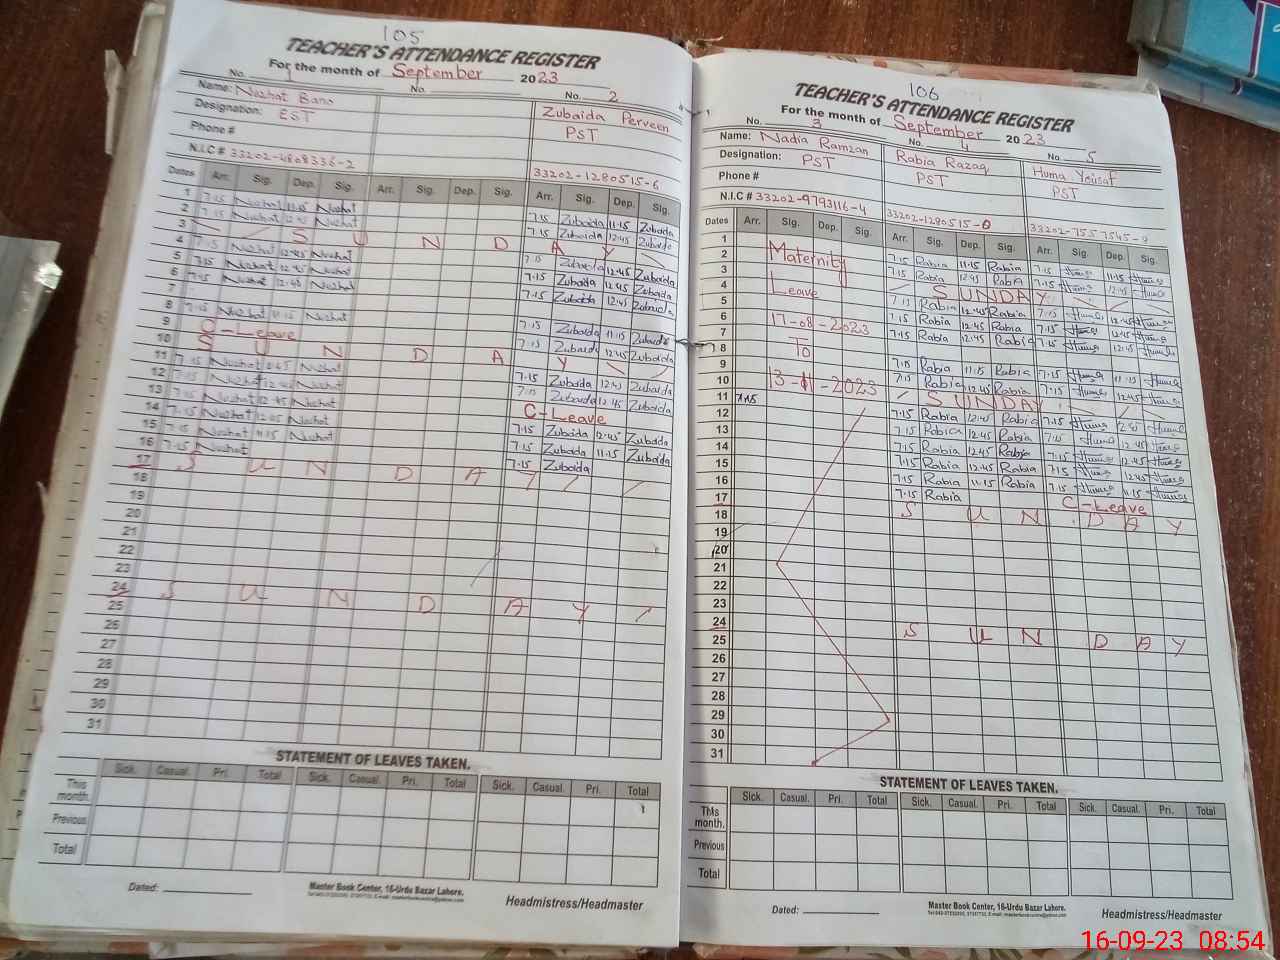 105
TEACHER'S ATTENDANCE REGISTER
For the month of September 2023
No. 1 No. No. 2
Name: Nuzhat Bano Zubaida Perveen
Designation: EST PST
Phone #
N.I.C # 33202-4808336-2 33202-1280515-6
Dates Arr. Sig. Dep. Sig. Arr. Sig. Dep. Sig. Arr. Sig. Dep. Sig.
1 7.15 Nuzhat 11.15 Nuzhat 7.15 Zubaida 11.15 Zubaida
2 7.15 Nuzhat 12.45 Nuzhat 7.15 Zubaida 12.45 Zubaida
3 S U N D A Y
4 7.15 Nuzhat 12.45 Nuzhat 7.15 Zubaida 12.45 Zubaida
5 7.15 Nuzhat 12.45 Nuzhat 7.15 Zubaida 12.45 Zubaida
6 7.15 Nuzhat 12.45 Nuzhat 7.15 Zubaida 12.45 Zubaida
7
8 7.15 Nuzhat 11.15 Nuzhat 7.15 Zubaida 11.15 Zubaida
9 C-Leave 7.15 Zubaida 12.45 Zubaida
10 S U N D A Y
11 7.15 Nuzhat 12.45 Nuzhat 7.15 Zubaida 12.45 Zubaida
12 7.15 Nuzhat 12.45 Nuzhat 7.15 Zubaida 12.45 Zubaida
13 7.15 Nuzhat 12.45 Nuzhat C-Leave
14 7.15 Nuzhat 12.45 Nuzhat 7.15 Zubaida 12.45 Zubaida
15 7.15 Nuzhat 11.15 Nuzhat 7.15 Zubaida 11.15 Zubaida
16 7.15 Nuzhat 7.15 Zubaida
17 S U N D A Y
18
19
20
21
22
23
24 S U N D A Y
25
26
27
28
29
30
31
STATEMENT OF LEAVES TAKEN.
Sick. Casual. Pri. Total Sick. Casual. Pri. Total Sick. Casual. Pri. Total
This month.
Previous
Total
Dated:
Master Book Center, 16-Urdu Bazar Lahore.
Headmistress/Headmaster
106
TEACHER'S ATTENDANCE REGISTER
For the month of September 2023
No. 3 No. 4 No. 5
Name: Nadia Ramzan Rabia Razaq Huma Yousaf
Designation: PST PST PST
Phone #
N.I.C # 33202-9793116-4 33202-1280515-0 33202-7557545-9
Dates Arr. Sig. Dep. Sig. Arr. Sig. Dep. Sig. Arr. Sig. Dep. Sig.
1 7.15 Rabia 11.15 Rabia 7.15 Huma 11.15 Huma
2 Maternity 7.15 Rabia 12.45 Rabia 7.15 Huma 12.45 Huma
3 S U N D A Y
4 Leave 7.15 Rabia 12.45 Rabia 7.15 Huma 12.45 Huma
5 7.15 Rabia 12.45 Rabia 7.15 Huma 12.45 Huma
6 17-08-2023 7.15 Rabia 12.45 Rabia 7.15 Huma 12.45 Huma
7 To
8 7.15 Rabia 11.15 Rabia 7.15 Huma 11.15 Huma
9 7.15 Rabia 12.45 Rabia 7.15 Huma
10 13-11-2023 S U N D A Y
11 7.15 7.15 Rabia 12.45 Rabia 7.15 Huma 12.45 Huma
12 7.15 Rabia 12.45 Rabia 7.15 Huma 12.45 Huma
13 7.15 Rabia 12.45 Rabia 7.15 Huma 12.45 Huma
14 7.15 Rabia 12.45 Rabia 7.15 Huma 12.45 Huma
15 7.15 Rabia 11.15 Rabia 7.15 Huma 11.15 Huma
16 7.15 Rabia C-Leave
17 S U N D A Y
18
19
20
21
22
23
24 S U N D A Y
25
26
27
28
29
30
31
STATEMENT OF LEAVES TAKEN.
Sick. Casual. Pri. Total Sick. Casual. Pri. Total Sick. Casual. Pri. Total
This month.
Previous
Total
Dated:
Master Book Center, 16-Urdu Bazar Lahore.
Headmistress/Headmaster
16-09-23 08:54